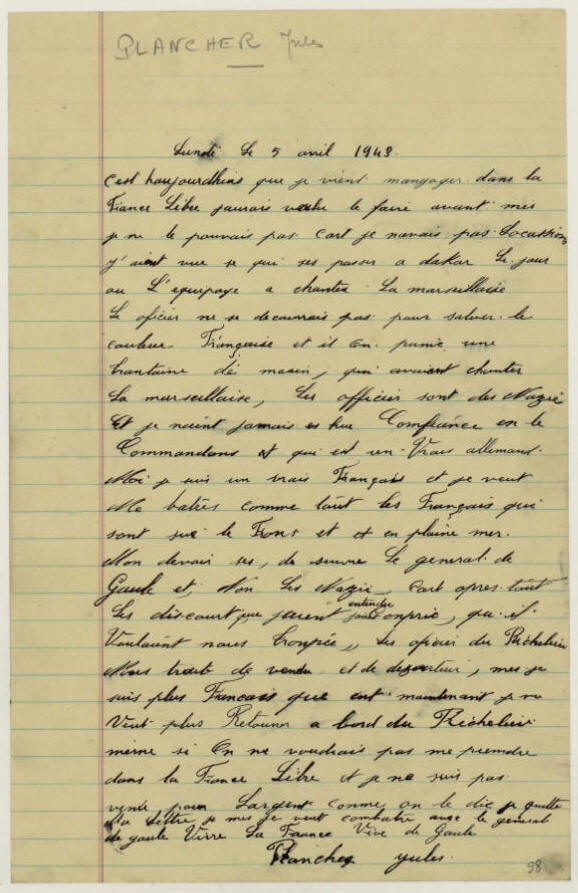 PLANCHER Jules
Lundi Le 5 avril 1943.
c'est haujourdhuis que je vient mangager dans la
France Libre jaurais voulu le faire avant mes
je ne le pouvais pas cart je navais pas Locassion
j'aient vue se qui ses passer a dakar Le jour
ou L'equipage a chanter La marseillaise
Le oficier ne se decouvrais pas pour saluer le
couleur Française et il on punie une
trantaine de marin, qui avaient chanter
La marseillaise, Les officier sont des Nazie
Et je naient jamais hue Comfiance en le
Commandant et qui est un Vrais allemand.
Moi je suis un vrais Français et je veut
Me batres comme tout les Français qui
sont sur le Front et en plaine mer.
Mon devoir ses, de suivre Le general de
Gaule et, Non Les Nazie, Cart apres tout
Les discourt que jaient entendue, que il
Voulaint nous tronpée,, Les oficier du Richelieu
Nous traite de vendu et de deserteur, mes je
suis plus Francais que eut maintenant je ne
Veut plus Retouner a bord du Richelieu
même si On ne voudrais pas me prendre
dans la France Libre et je ne suis pas
vendu pour Largent comme on le dit je quitte
Ma Lettre je mes je veut combatre avec le general
de gaule Vivre La France Vive de Gaule
Plancher yules.
98